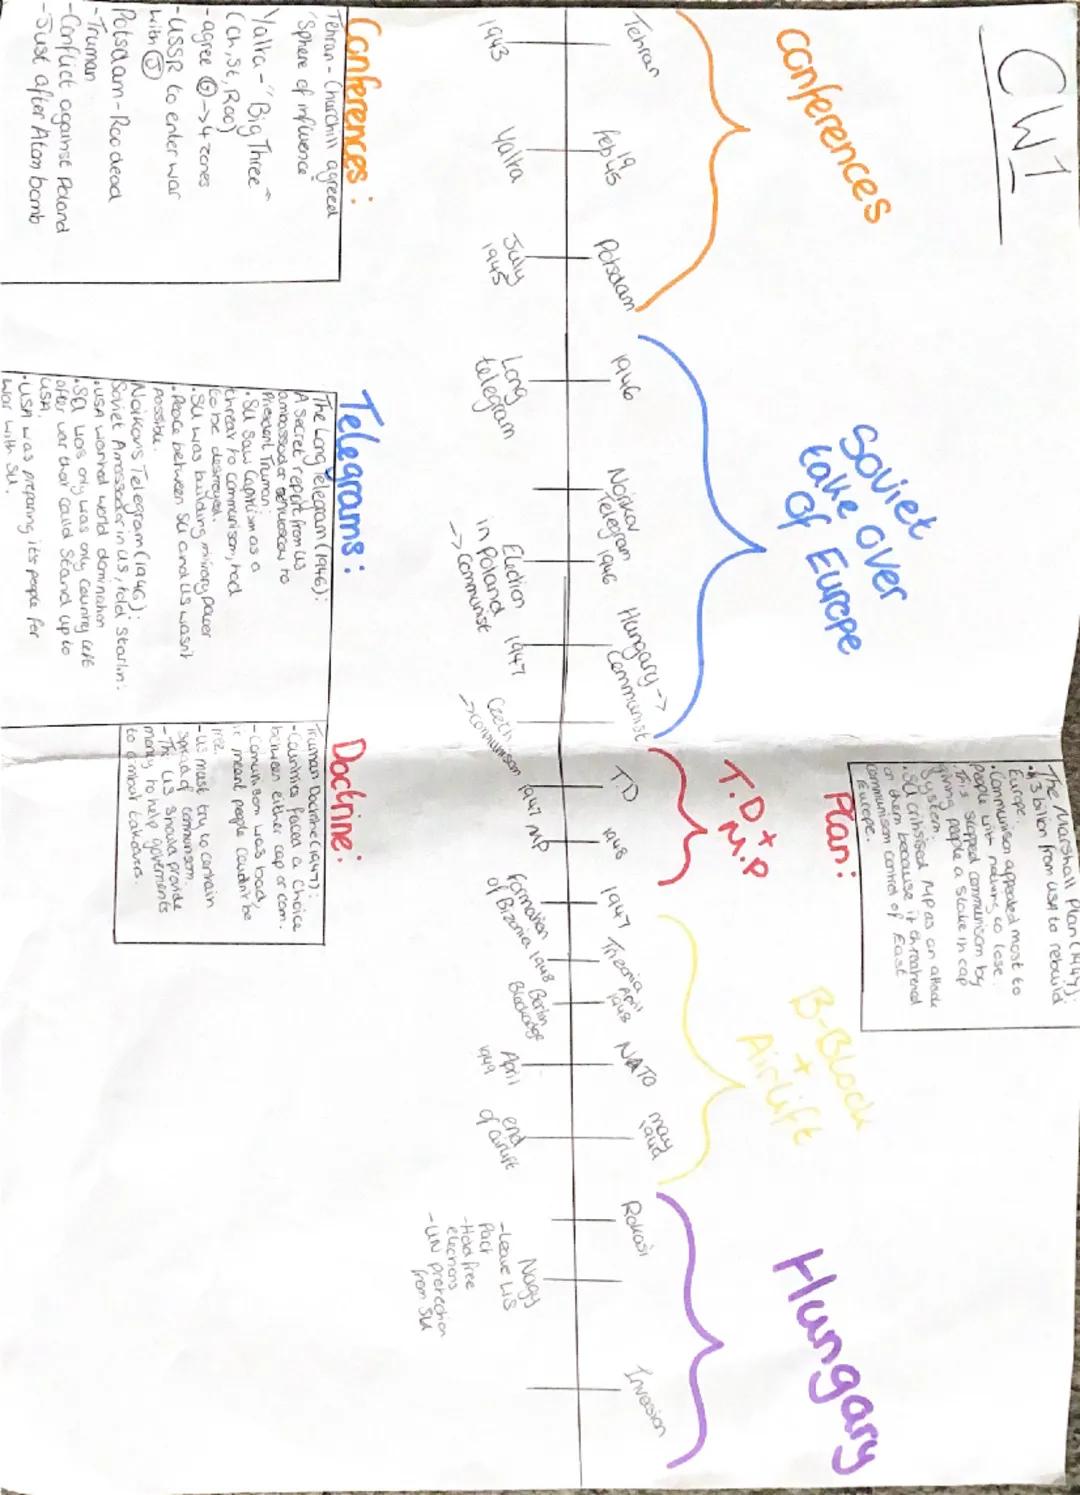 CW1
conferences
Soviet
take over
of Europe
T.D +
M.P
B-Block
+
Airlift
Hungary
Plan:
The Marshall Plan (1947):
Europe.
• Communism appealed most to
people with nothing to lose.
• This stopped communism by
giving people a stake in cap
system.
• SU critisised MP as an attack
on them because it threatened
communism control of East
Europe.
Tehran
1943
Feb 1945
Yalta
Potsdam
July
1945
1946
Long
telegram
Novikov
Telegram
1946
Election
in Poland
-> Communist
1947
Hungary ->
Communist
-> communism
T.D
1947 MP
1948
1947
Formation
of Bizonia 1948
Trizonia April
1948
Berlin
Blockage
NATO
April
1949
may
end
of airlift
Rakosi
Nagy
- Leave WS
Pact
- Hold free
elections
- UN protection
from SU
Invasion
Conferences:
Tehran - Churchill agreed
'Sphere of influence'
Yalta - "Big Three"
(Ch, St, Roo)
- agree G -> 4 zones
- USSR to enter war
with J
Potsdam - Roo dead
- Truman
- Conflict against Poland
- Just after Atom bomb
Telegrams:
The Long Telegram (1946):
A secret report from US
President Truman:
• SU saw Capitlism as a
threat to communism, had
to be destroyed.
• SU was building military power
• Peace between SU and US wasn't
possible.
Novikov's Telegram (1946):
Soviet Amassador in US, told Starlin:
• USA wanted world domination
• SU was only was only country left
after war that could stand up to
USA
• USA was preparing its people for
war with SU.
Doctrine:
Truman Doctrine (1947):
• Countries faced a choice
between either cap or com.
- Communism was bad,
it meant people couldn't be
- US must try to contain
spread of communism.
- The US should provide
money to help goverments
to combat takeovers.